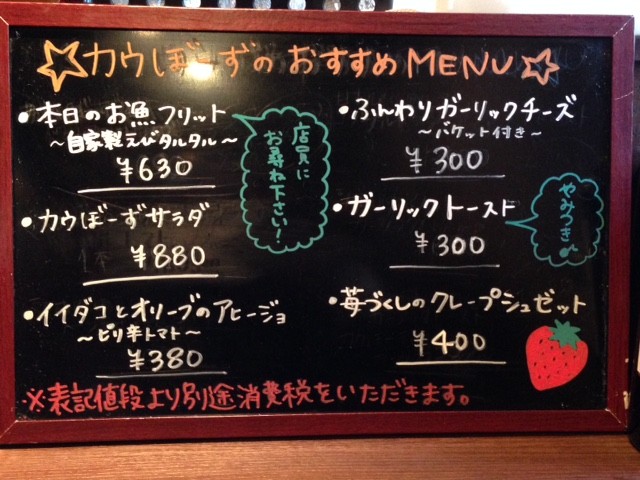 ☆カウぼーずのおすすめMENU☆
・本日のお魚フリット
～自家製えびタルタル～
¥630
店員に
お尋ね下さい!
・カウぼーずサラダ
¥880
・イイダコとオリーブのアヒージョ
～ピリ辛トマト～
¥380
・ふんわりガーリックチーズ
～バケット付き～
¥300
・ガーリックトースト
¥300
やみつき♪
・苺づくしのクレープシュゼット
¥400
※表記値段より別途消費税をいただきます。